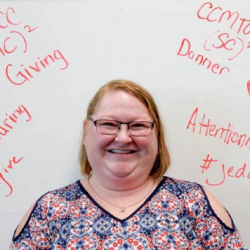 CC
C)²
Giving
uring
give
CCM
(SC)²
Donner
Attention
#jed